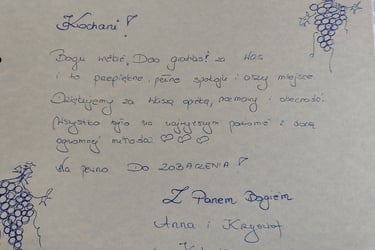 Kochani!
Bogu niech, Deo gratias! za Was
i to przepiękne, pełne spokoju i ciszy miejsce.
Dziękujemy za Waszą opiekę, rozmowy i obecność.
Wszystko było na najwyższym poziomie i z dozą
ogromnej miłości ♡♡♡
Na pewno DO ZOBACZENIA!
Z Panem Bogiem
Anna i Krzysztof